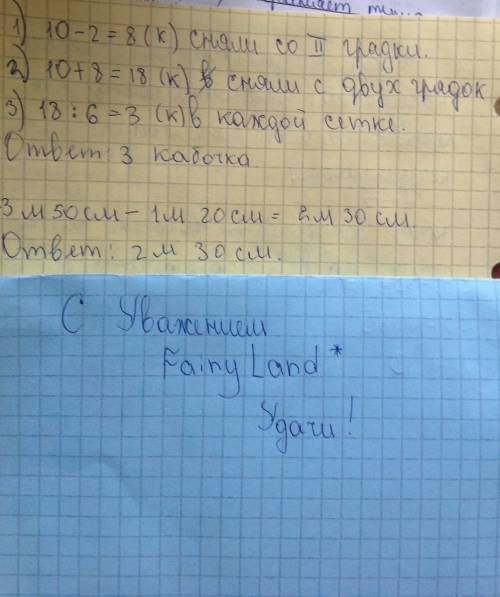 1) 10-2=8 (к) сняли со II грядки.
2) 10+8=18 (к) сняли с двух грядок
3) 18:6=3 (к) в каждой сетке.
Ответ: 3 кабочка
3 м 50 см - 1 м 20 см = 2 м 30 см
Ответ: 2 м 30 см.
С Уважением
Fairy Land*
Удачи!